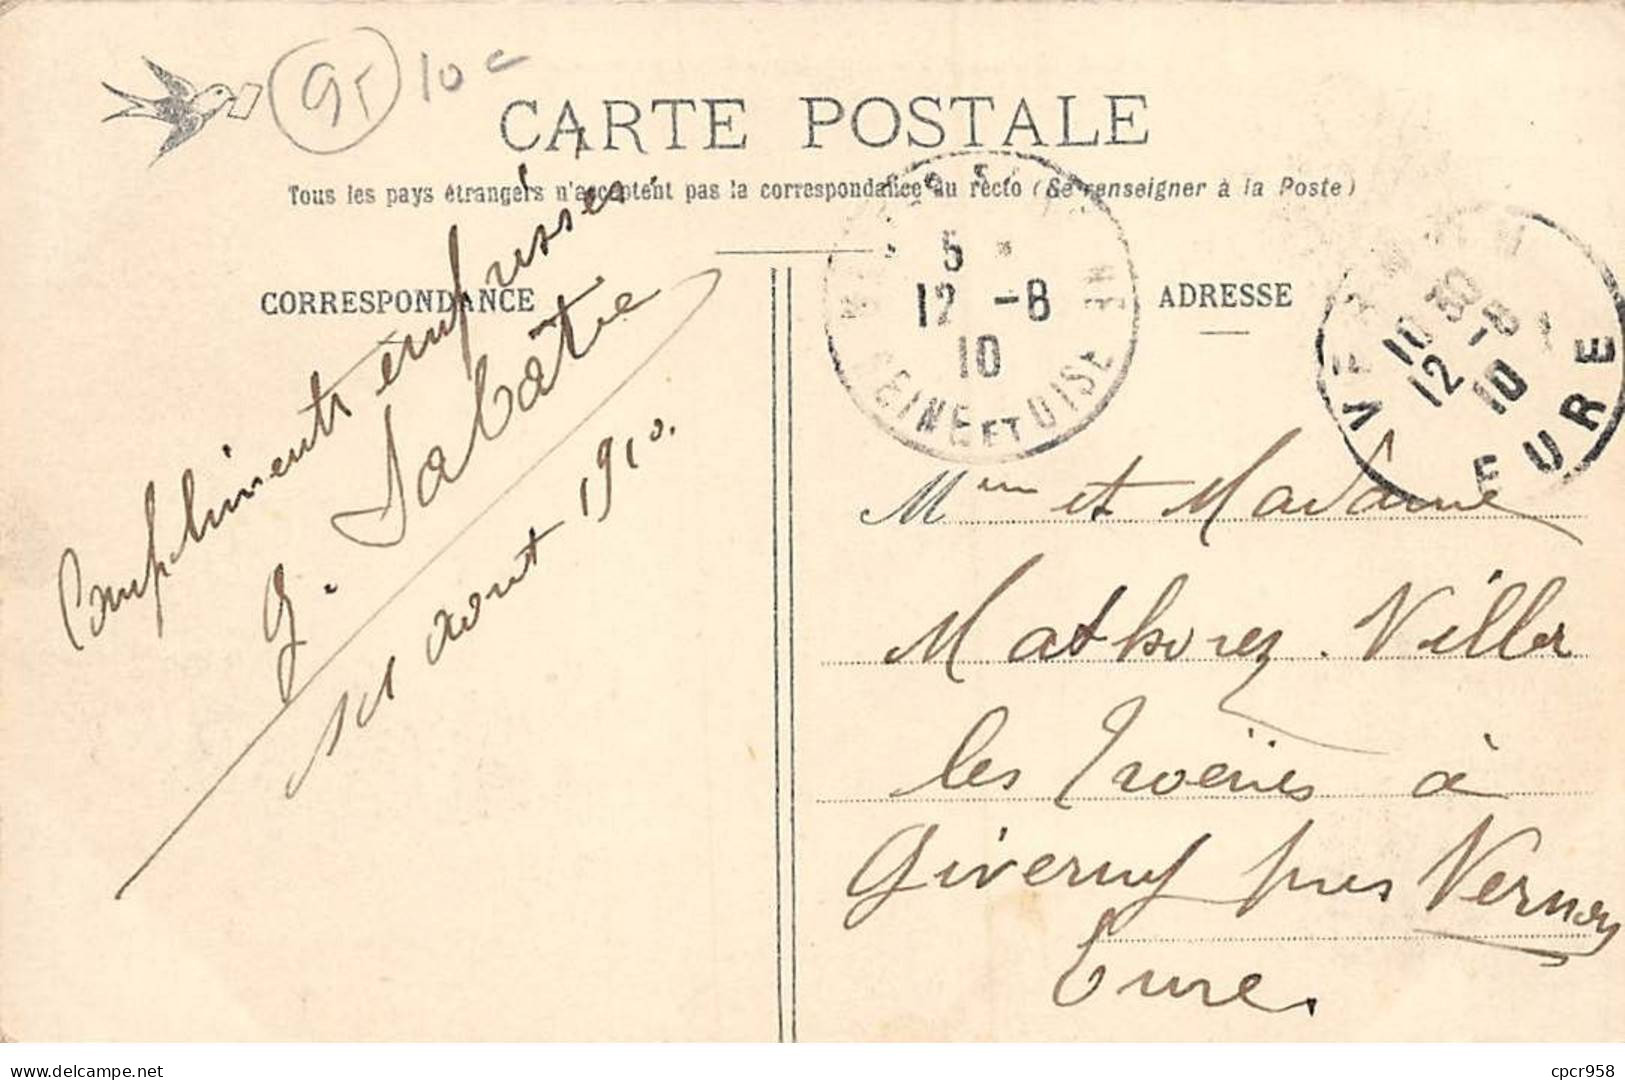 95 10 c
CARTE POSTALE
Tous les pays étrangers n'acceptent pas la correspondance au recto (Se renseigner à la Poste)
CORRESPONDANCE
Compliments empressés
G. Sabatie
11 aout 1910.
5 *
12 -8
10
SEINE ET OISE
ADRESSE
VERNON
10 30
12 -8
10
EURE
Mme et Madame
Mathorez. Villa
les Troënes à
Giverny près Vernon
Eure.
delcampe.net
cpcr958